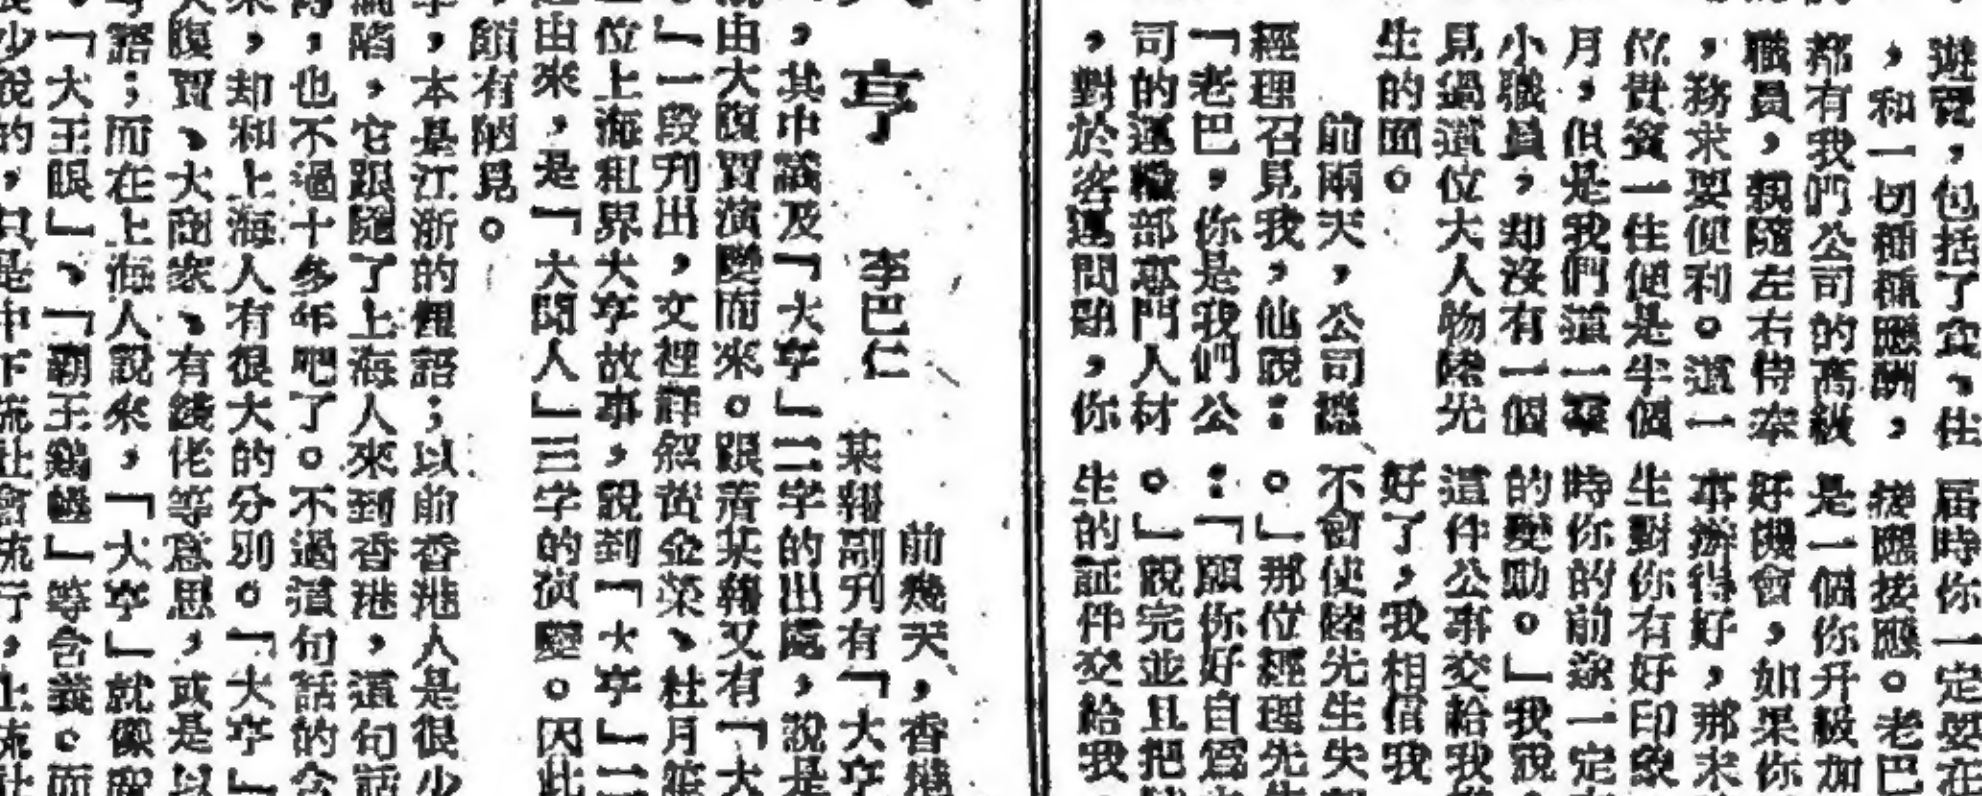 遊覽,包括了食、住
,和一切種種應酬,
都有我們公司的高級
職員,親隨左右侍奉
,務求要便利。這一
位貴賓一住便是半個
月,但是我們這一羣
小職員,却沒有一個
見過這位大人物陸先
生的面。
前兩天,公司總
經理召見我,他說:
「老巴,你是我們公
司的運輸部專門人材
,對於客運問題,你
屆時你一定要在
應接應。老巴
是一個你升級加
好機會,如果你
事辦得好,那末
生對你有好印象
時你的前途一定
的獎勵。」我說
這件公事交給我
好了,我相信我
不會使陸先生失
。」那位經理先
:「願你好自爲
。」說完並且把
生的証件交給我
亨
李巴仁
前幾天,香港
某報副刊有「大亨
,其中議及「大亨」二字的出處,說是
由大腹賈演變而來。跟着某報又有「大
」一段刊出,文裡詳叙黃金榮、杜月笙
位上海租界大亨故事,說到「大亨」二
由來,是「大聞人」三字的演變。因此
頗有陋見。
,本是江浙的俚語;以前香港人是很少
淪陷,它跟隨了上海人來到香港,這句話
,也不過十多年吧了。不過這句話的含
來,却和上海人有很大的分別。「大亨」
大腹賈、大商家、有錢佬等意思,或是以
語;而在上海人說來,「大亨」就像說
「大王眼」、「霸王鷄」等含義。而
少說的,只是中下流社會流行,上流社